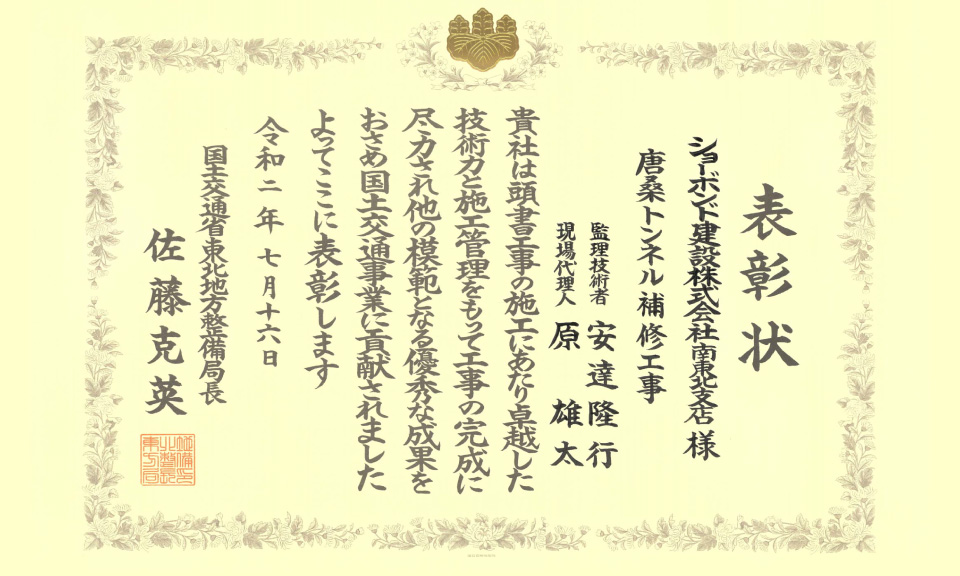 表彰状
ショーボンド建設株式会社 南東北支店 様
唐桑トンネル補修工事
監理技術者 安達隆行
現場代理人 原 雄太
貴社は頭書工事の施工にあたり卓越した
技術力と施工管理をもって工事の完成に
尽力され他の模範となる優秀な成果を
おさめ国土交通事業に貢献されました
よってここに表彰します
令和二年七月十六日
国土交通省東北地方整備局長
佐藤克英